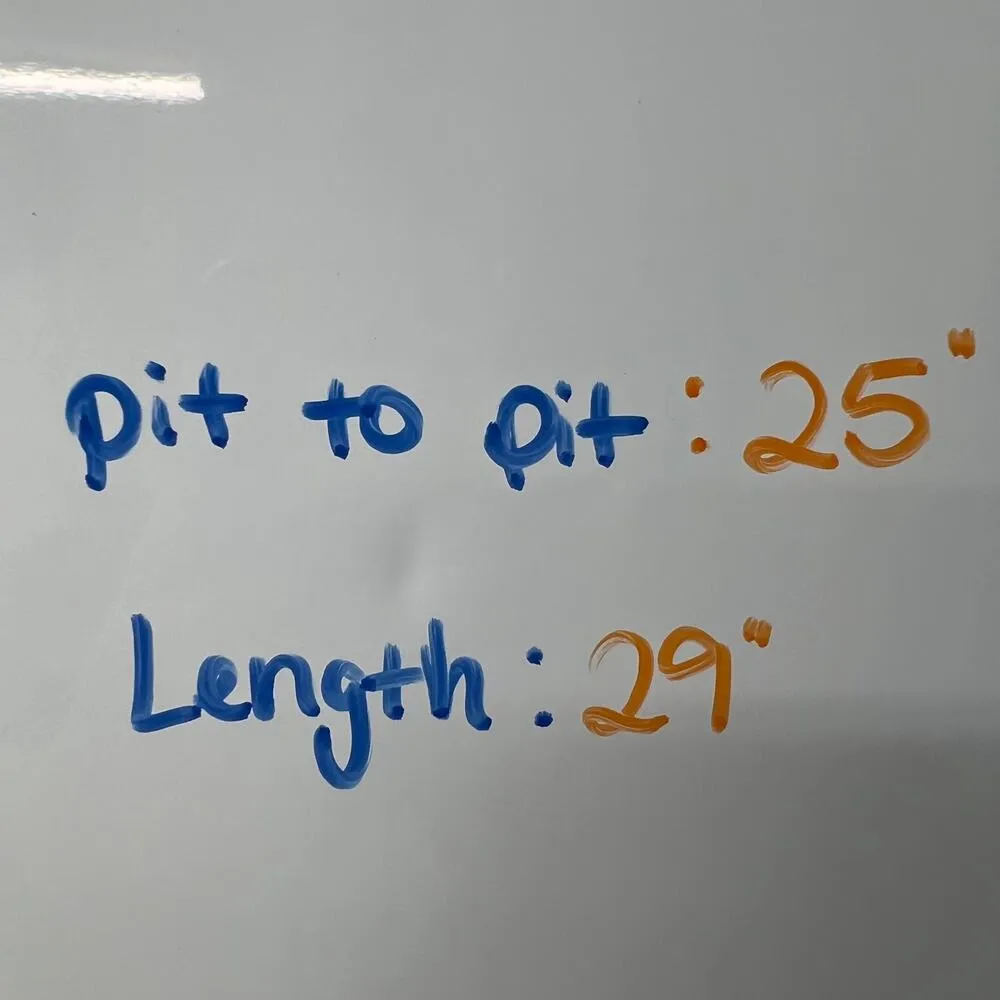 pit to pit : 25"
Length : 29"